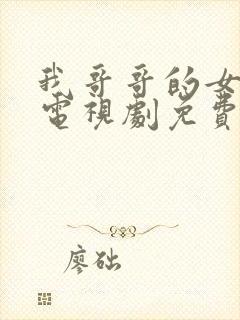 我哥哥的女
電視劇免費
廖础